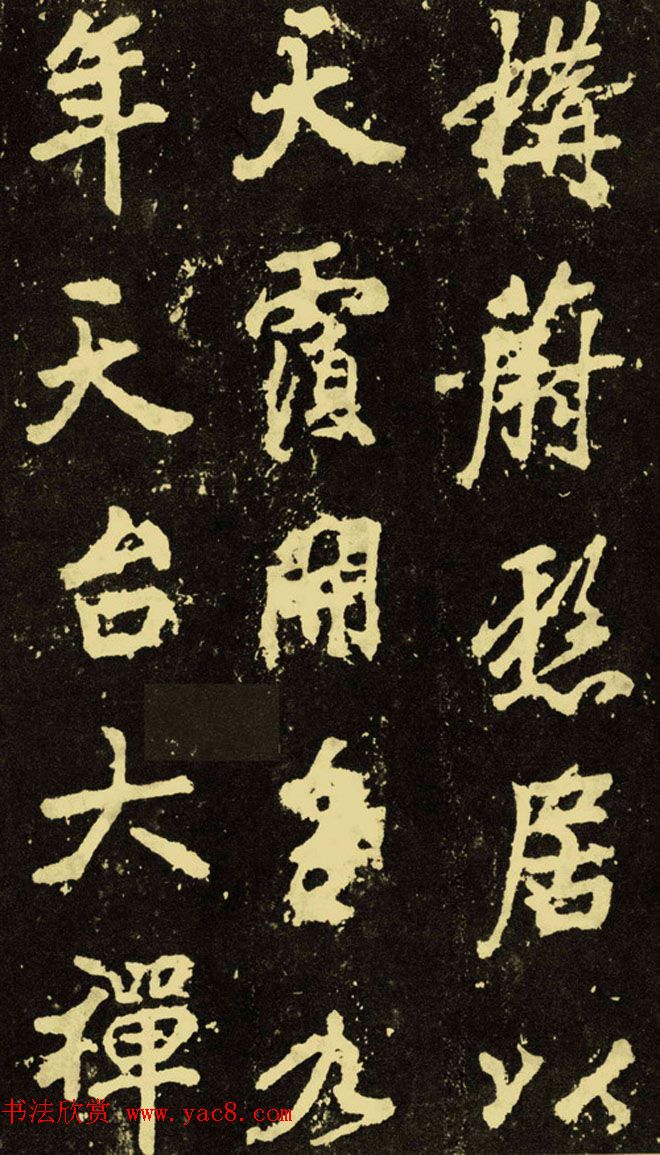 構蔚懸居以
天霞開皇九
年天台大禪
书法欣赏 www.yac8.com